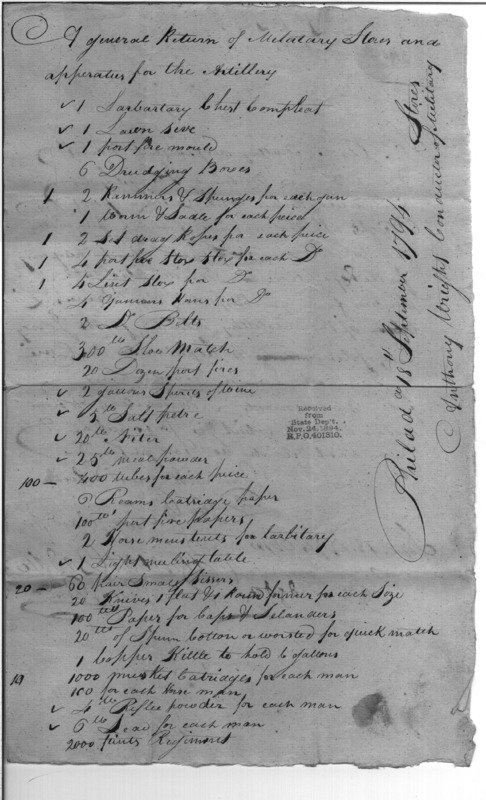 A general Return of Melatary Stores and
apperatus for the Artillery
✓ 1 Larbartary Chest Compleat
✓ 1 Lawn Sive
✓ 1 port fire mould
6 Drudging Boxes
1 2 Rammers & Spunges for each gun
1 Worm & Ladle for each piece
1 2 Sett drag Ropes for each piece
1 4 port fire Stox for each Do
1 4 Lint Stox for Do
4 Gunnors Horns for Do
2 Do Belts
300 lb Slow Match
20 Dozen port fires
✓ 2 gallons Spiries of wine
✓ 5 lb Salt petre
✓ 20 lb Niter
✓ 25 lb meal powder
100 — 400 tubes for each piece
6 Reams Catridge paper
100 port fire papers
2 Horsemens tents for Larbitary
✓ 1 Light mealing table
20 — 60 pair Small Sissers
20 Knives 1 flat & 1 Round former for each Size
100 Paper for Caps & Selanders
20 of Spun Cotton or worsted for quick match
1 Copper Kittle to hold 6 gallons
1000 musket Catridges for each man
100 for each horse man
✓ 4 lb Rifle powder for each man
✓ 6 lb Lead for each man
2000 flints Regiment
Received
from
State Dep't.
Nov. 24, 1894.
R.P.O, 401310.
Philad a 18th September 1794
Anthony Wright Conducter of Military
Stores